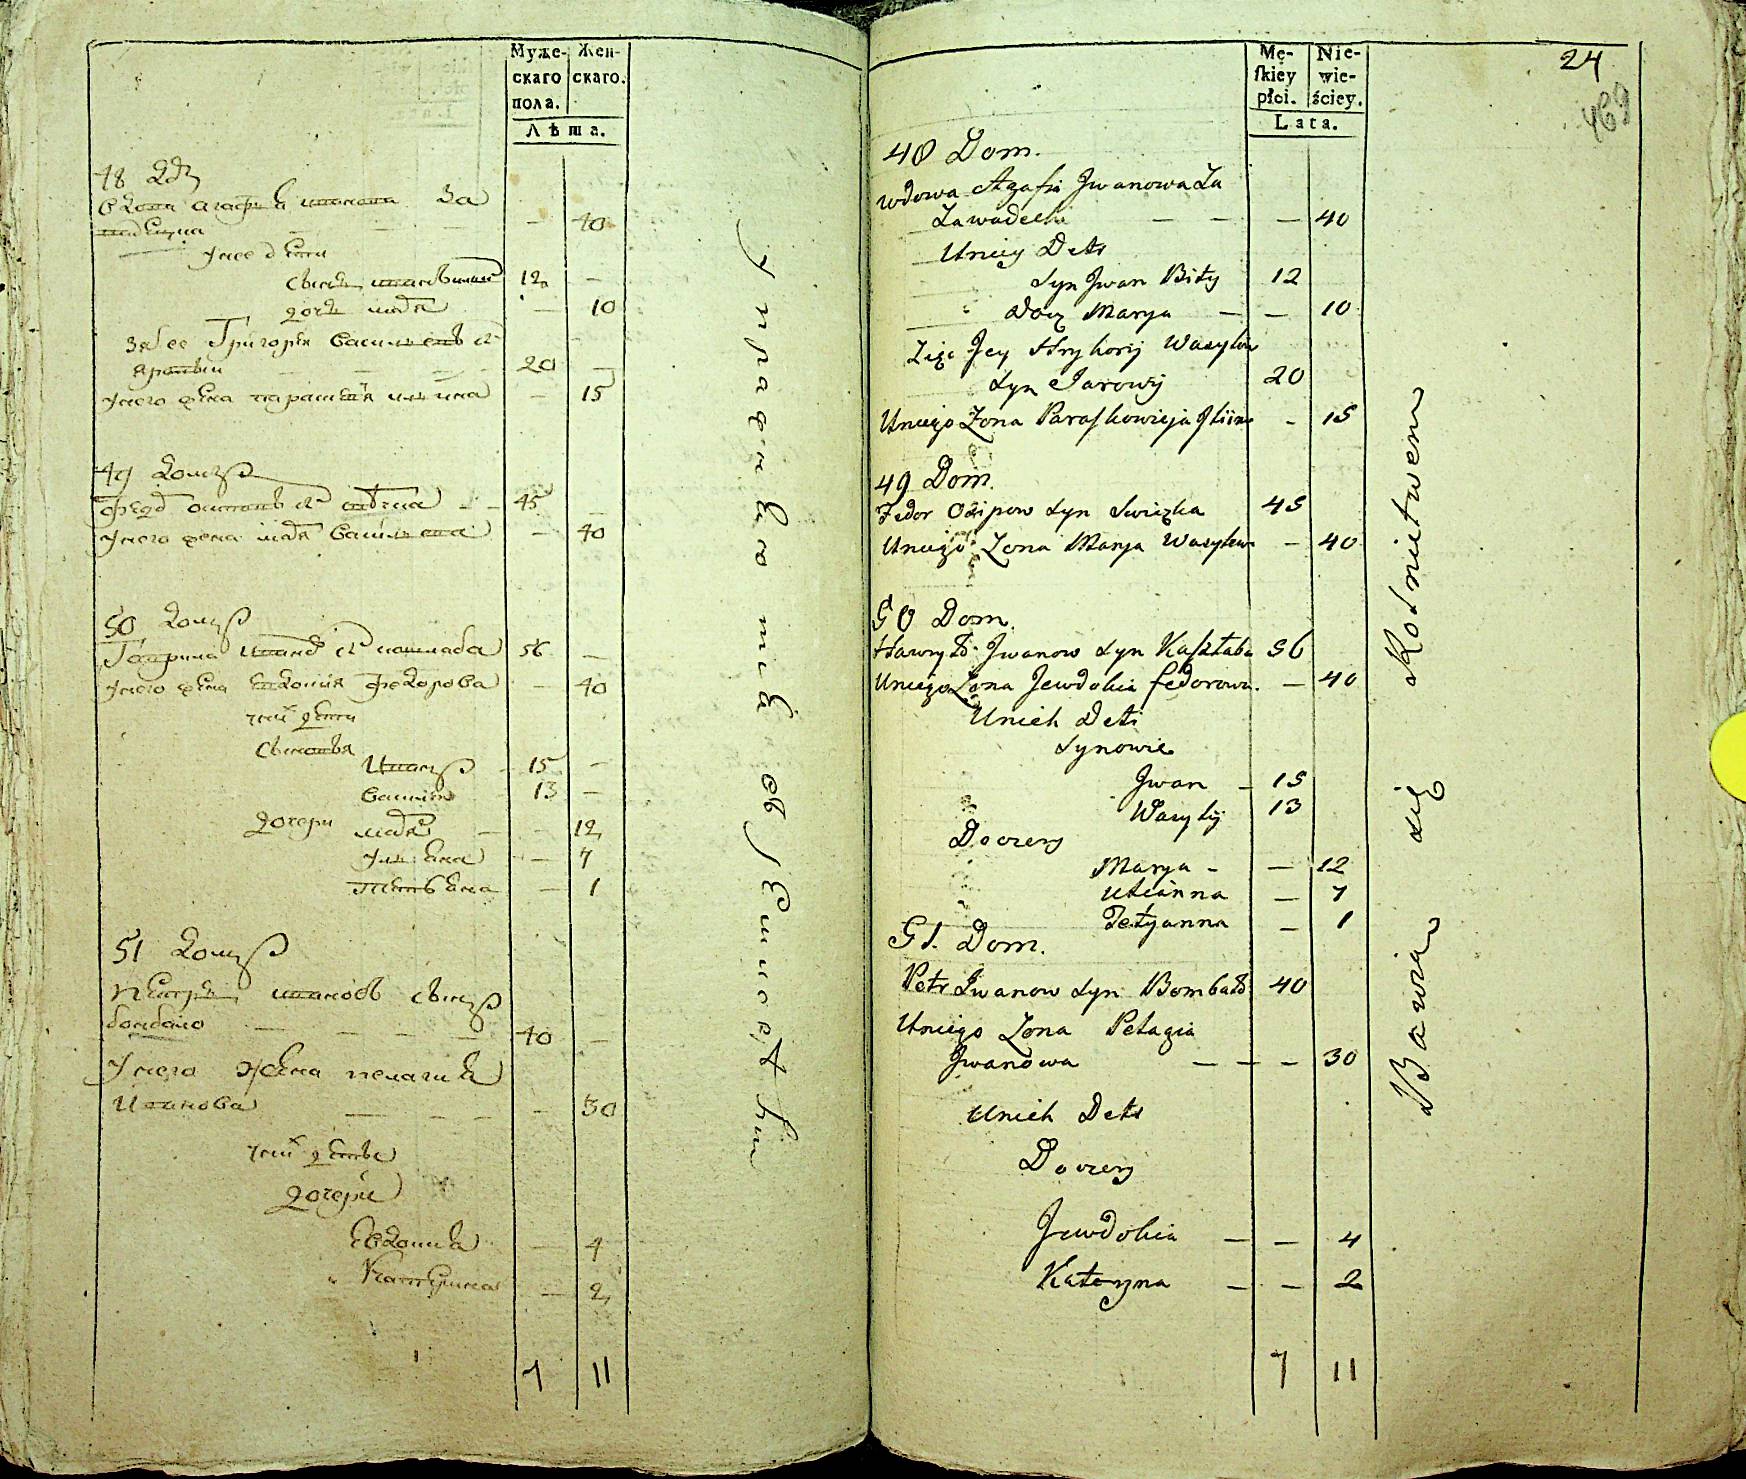 Муже-
скаго
пола.
Жен-
скаго.
Лѣта.
48
вдова агафія иванова За
вадецка — 40
у нее дети
сынъ иванъ 12 —
дочь маря — 10
зять ее Григорія василевъ
яровыи 20 —
у него жена параскевія илина — 15
49 домъ
Федор осиповъ 45 —
у него жена маря василева — 40
50 домъ
Гаврила иванов 56 —
у него жена евдокия Федорова — 40
у них дети
сыновя
Иванъ 15 —
василь 13 —
дочери маря — 12
улияна — 7
татияна — 1
51 домъ
петръ ивановъ сынъ
бомбало 40 —
у него жена пелагия
иванова — 30
у них дети
дочери
евдокия — 4
Катерина — 2
7 11
Mę-
ſkiey
płci.
Nie-
wie-
ściey.
Lata.
24
469
48 Dom.
wdowa Agafia Jwanowa Za
Zawadecka — — — 40
Uniey Deti
Syn Jwan Biły 12
Docz Marya — — 10
Zięc Jey Hryhorij Wasylow
Syn Jarowy 20
Uniego Zona Paraſkowieja Jliina - 15
49 Dom.
Fedor Osipow Syn Swiezka 45
Uniego Zona Marya Wasylewa — 40
50 Dom.
Hawryło Jwanow Syn Kaſztaba 56
Uniego Zona Jewdokia fedorowa. — 40
Unich Deti
Synowie
Jwan - 15
Wasylij 13
Doczery
Marya - — 12
Ulianna — 7
Tetyanna — 1
51. Dom.
Petr Jwanow Syn Bombało 40
Uniego Zona Pelagia
Jwanowa — — — 30
Unich Deti
Doczery
Jewdokia — — 4
Kateryna — — 2
7 11
Bawią się Rolnictwem